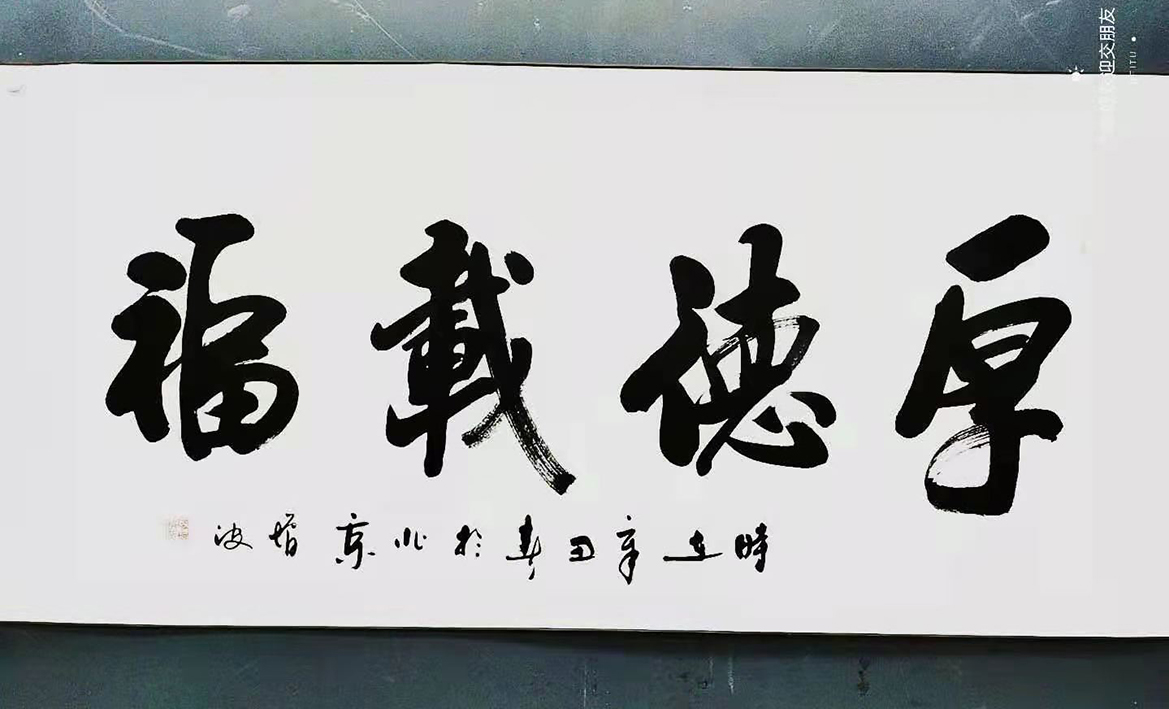 厚德載福
時在辛丑春於北京 增波
迎交朋友